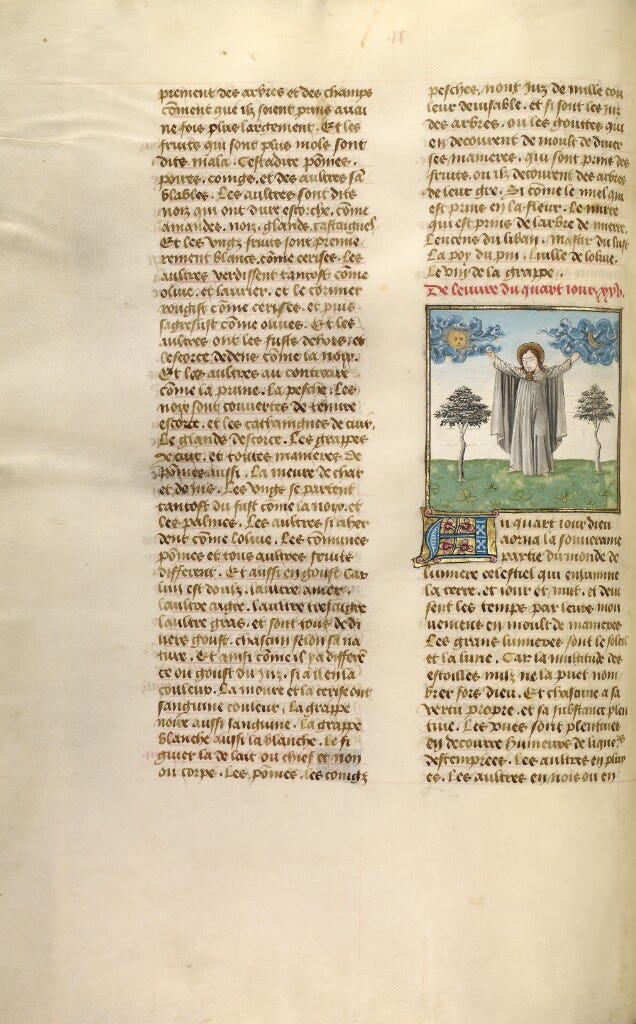 prement des arbres et des champs
cōment que ilz soient prins aucu
ne fois plus largement. Et les
fruits qui sont plus mols sont
dits mala. Cestadire pōmes.
poires. coings. et des aultres sā
blables. Les aultres sont dits
noiz qui ont dure escorche. cōme
amandes. noiz. glands. castaignes
Et les vngz fruits sont premie
rement blancz. cōme cerises. Les
aultres verdissent tantost cōme
oliue. et laurier. et le cormier
rougist cōme cerises. et puis
cōme oliues. Et les
aultres ont les fusts dehors. et
lescorce dedens cōme la noix.
Et les aultres au contraire
cōme la prune. La pesche. Les
noix sont couuertes de tenure
escorce. et les cathaingnes de cuir.
Le glande descorce. Les grappes
de cuir. et toutes manieres de
pōmes aussi. La meure de char
et de jus. Les vngz se partent
tantost du fust comme la noix. et
les palmes. Les aultres si aher
dent cōme loliue. Les cōmunes
pōmes et tous aultres fruits
different. Et aussi en goust Car
lun est doulz. laultre amer.
laultre aigre. laultre tresaigre
laultre gras. et sont tous de di
uers goust. chascun selon sa na
ture. Et ainsi cōme il y a differē
ce ou goust du juz. si a il en la
couleur. La moure et la cerise ont
sanguine couleur. La grappe
noire aussi sanguine. la grappe
blanche aussi la blanche. le fi
guier la de lait ou chief et non
ou corps. Les pōmes. les coingz
pesches. nont juz de nulle cou
leur deuisable. et si sont les juz
des arbres. ou les gouttes qui
en decourent de moult de diuer
ses manieres. qui sont prins des
fruits. ou ilz decourent des arbres
de leur gre. Si cōme le miel qui
est prins en la fleur. Le mirre
qui est prins de larbre de mirre.
Lencens du liban. Mastic du
La poy du pin. Luille de loliue.
Le vin de la grappe.
De leuure du quart iour. xxvi.
Au quart iour dieu
aorna la souueraine
partie du monde de
lumiere celestiel qui enlumine
la terre. et iour et nuit. et diui
sent les temps par leurs mou
uement en moult de manieres
Les grans lumieres sont le soleil
et la lune. Car la multitude des
estoilles nulz ne la puet nom
brer fors dieu. Et chascune a sa
vertu propre. et sa substance plan
tiue. Les vnes sont plentiues
en decourre humeurs de liqueurs
destemprees. Les aultres en pluy
es. Les aultres en nois ou en